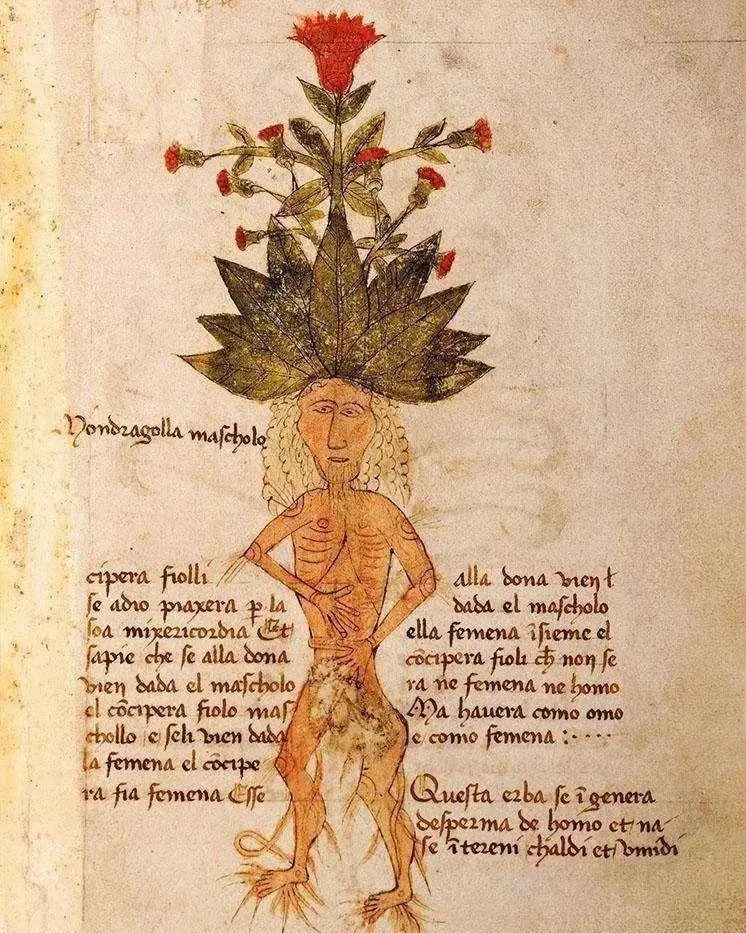 Mondragolla mascholo
cipera fiolli
se adio piaxera p̱ la
soa mixericordia Et
sapie che se alla dona
vien dada el mascholo
el cōcipera fiolo mas
chollo e seli vien dada
la femena el cōcipe
ra fia femena Esse
alla dona vien ł
dada el mascholo
ella femena īsieme el
cōcipera fioli cħ non se
ra ne femena ne homo
Ma havera como omo
e como femena :....
Questa erba se īgenera
desperma de homo et na-
se ītereni chaldi et vmidi